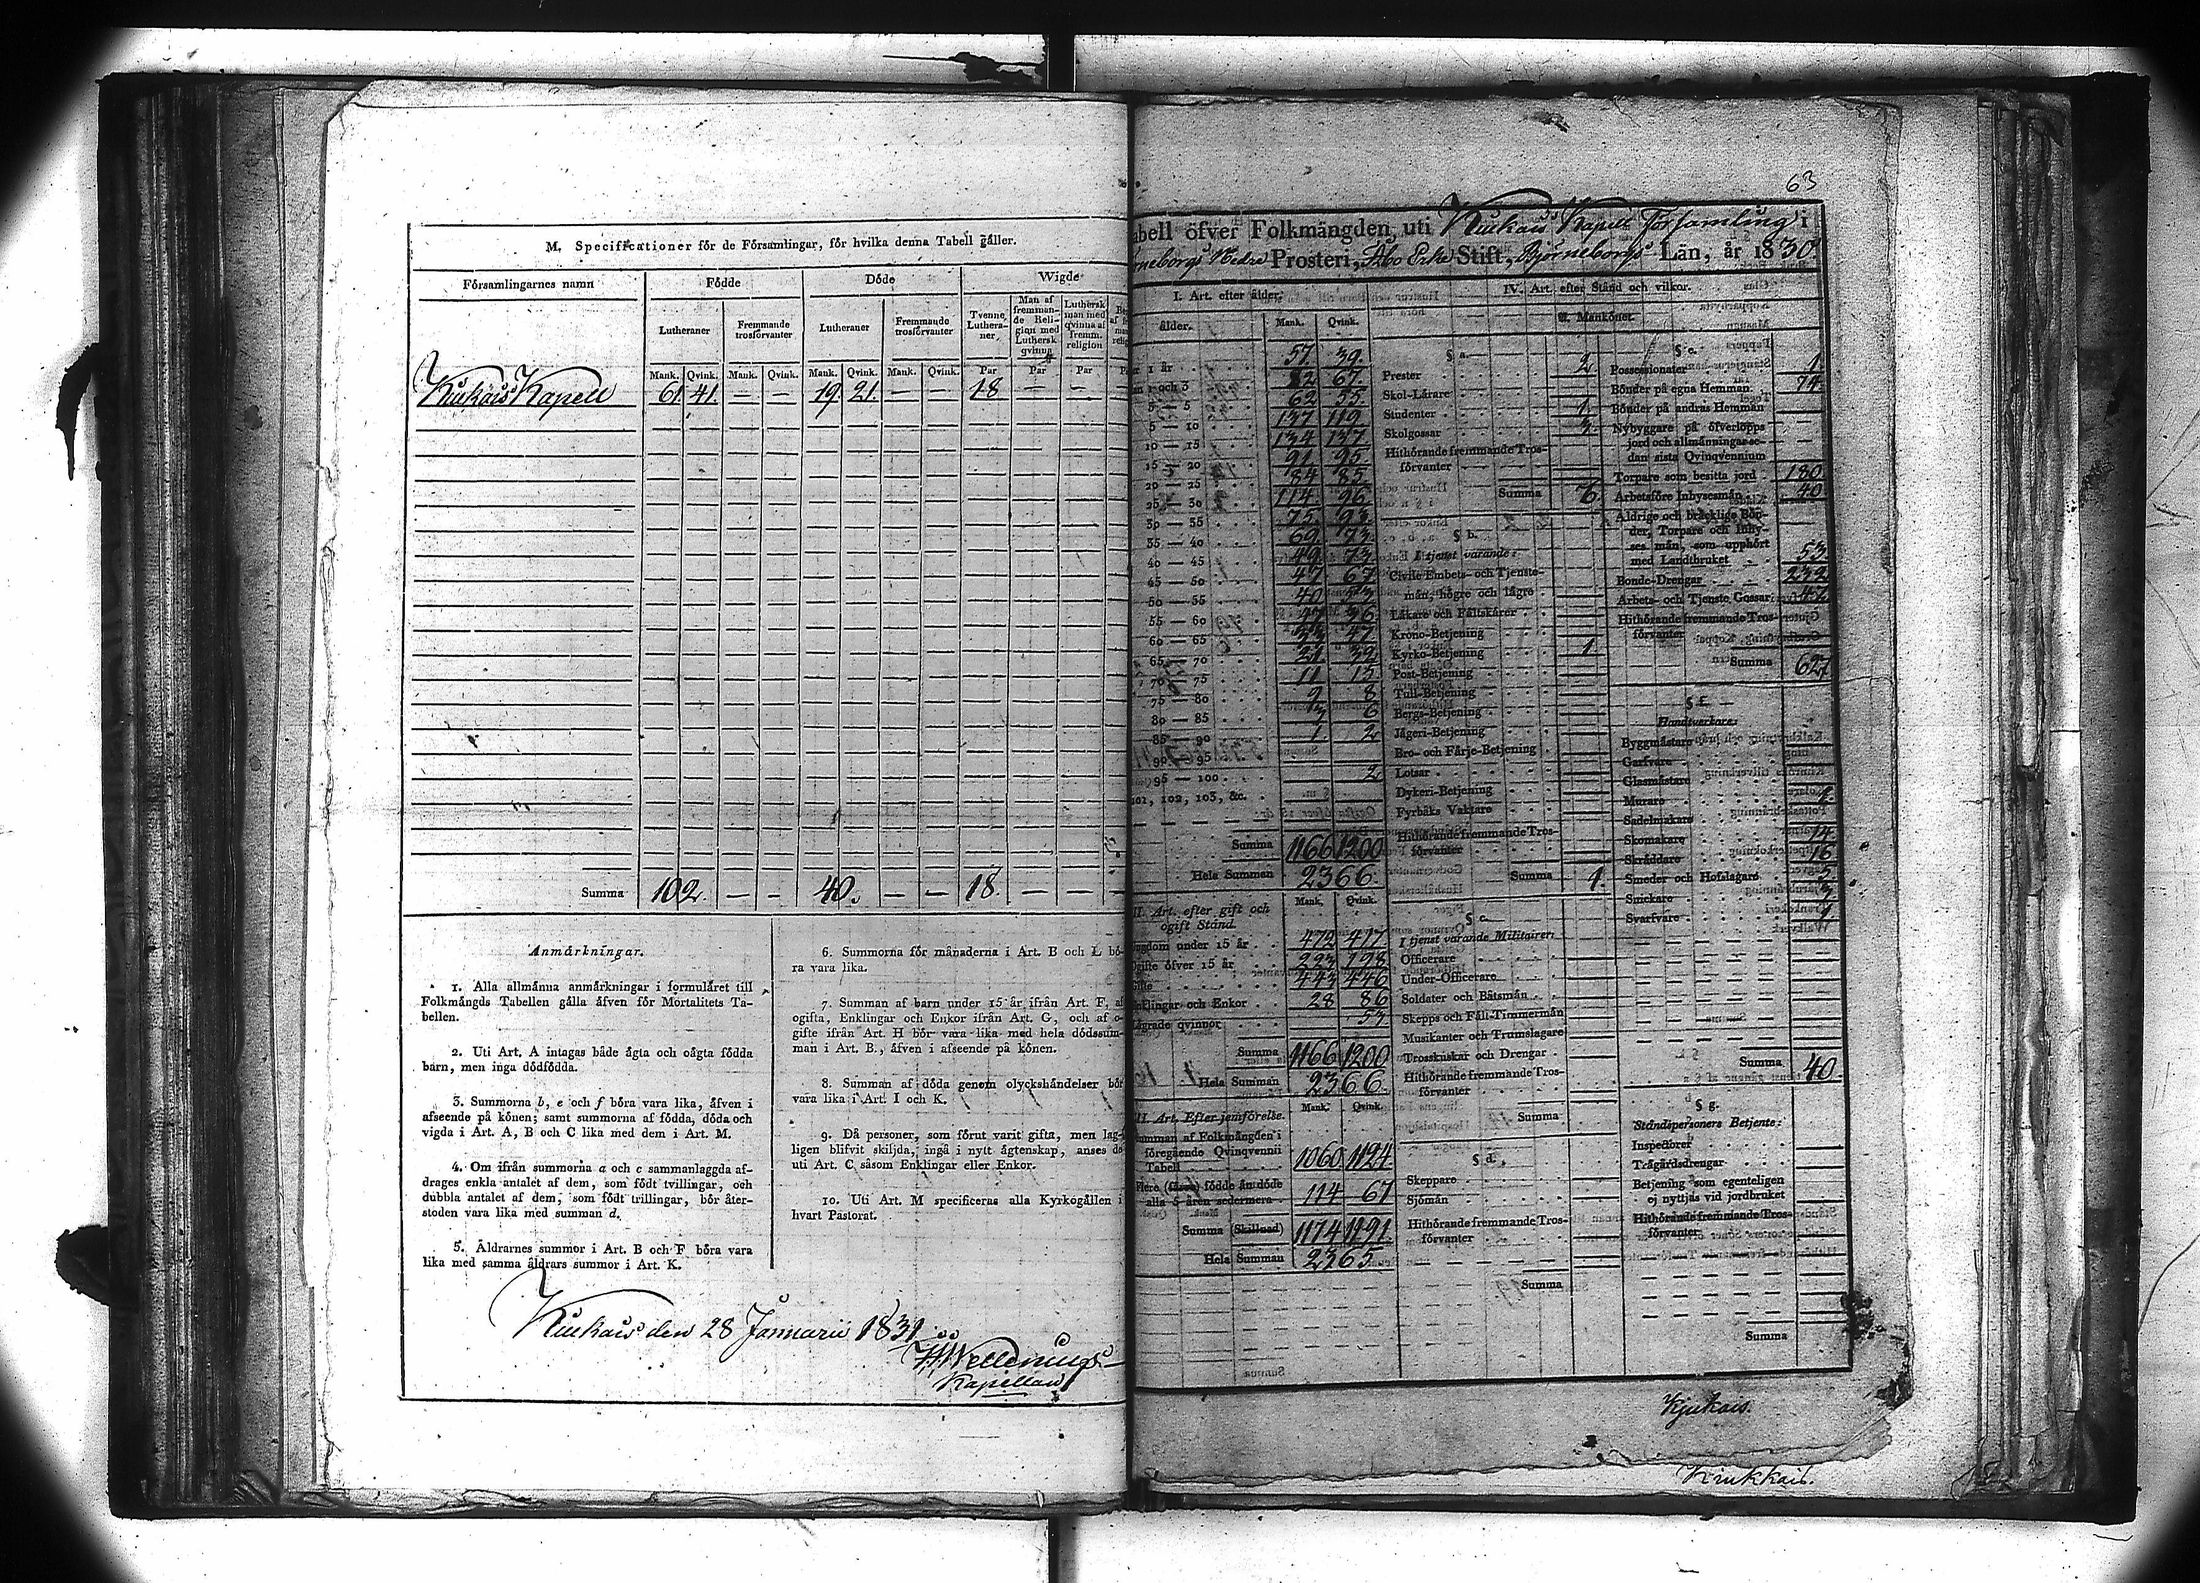 M. Specificationer för de Församlingar, för hvilka denna Tabell gäller.
Församlingarnes namn
Födde
Döde
Wigde
Lutheraner
Fremmande trosförvanter
Lutheraner
Fremmande trosförvanter
Tvenne Lutheraner
Man af fremmande Religion med Luthersk qvinna
Luthersk man med qvinna af fremm. religion
Mank. Qvink. Mank. Qvink. Mank. Qvink. Mank. Qvink. Par Par Par
Kiukais Kapell 61. 41. — — 19. 21. — — 18 — —
Summa 102. — — 40. — — 18. — —
Anmärkningar.
1. Alla allmänna anmärkningar i formuläret till
Folkmängds Tabellen gälla äfven för Mortalitets Ta-
bellen.
2. Uti Art. A intagas både ägta och oägta födda
barn, men inga dödfödda.
3. Summorna b, e och f böra vara lika, äfven i
afseende på könen; samt summorna af födda, döda och
vigda i Art. A, B och C lika med dem i Art. M.
4. Om ifrån summorna a och c sammanlaggda af-
drages enkla antalet af dem, som födt tvillingar, och
dubbla antalet af dem, som födt trillingar, bör åter-
stoden vara lika med summan d.
5. Åldrarnes summor i Art. B och F böra vara
lika med samma åldrars summor i Art. K.
6. Summorna för månaderna i Art. B och L bö-
ra vara lika.
7. Summan af barn under 15 år ifrån Art. F, af
ogifta, Enklingar och Enkor ifrån Art. G, och af o-
gifte ifrån Art. H bör vara lika med hela dödssum-
man i Art. B., äfven i afseende på könen.
8. Summan af döda genom olyckshändelser bör
vara lika i Art. I och K.
9. Då personer, som förut varit gifta, men lag-
ligen blifvit skiljda, ingå i nytt ägtenskap, anses de
uti Art. C såsom Enklingar eller Enkor.
10. Uti Art. M specificeras alla Kyrkogällen i
hvart Pastorat.
Kiukais den 28 Januarii 1831
Kapellan
63
abell öfver Folkmängden, uti Kiukais Kapell Församling i
rneborgs Nedre Prosteri, Åbo Erke Stift, Björneborgs Län, år 1830.
I. Art. efter ålder.
ålder. Mank. Qvink.
1 år 57. 39.
1 och 3 82 67.
3 — 5 62 55.
5 — 10 137 119
10 — 15 134 137
15 — 20 91 95
20 — 25 84 85
25 — 30 114. 96
30 — 35 75. 93.
35 — 40 69. 73.
40 — 45 49. 73
45 — 50 47 67
50 — 55 40
55 — 60 36
60 — 65 47
65 — 70 21. 32
70 — 75 11 15
75 — 80 9 8
80 — 85 3 6
85 — 90 1 2
90 — 95
95 — 100 2
101, 102, 103, &c.
Summa 1166 1200
Hela Summan 2366.
II. Art. efter gift och
ogift Stånd.
Mank. Qvink.
ngdom under 15 år 472 417
Ogifte öfver 15 år 223 198
Gifte 443 446
nklingar och Enkor 28 86
ägrade qvinnor 53.
Summa 1166 1200
Hela Summan 2366.
III. Art. Efter jemförelse.
Mank. Qvink.
umman af Folkmängden i
föregående Qvinqvennii
Tabell 1060 1124
Flere födde än döde
alla 5 åren sedermera 114 67
Summa (Skillnad) 1174 1191.
Hela Summan 2365.
IV. Art. efter Stånd och vilkor.
a. Mankönet.
§ a.
Prester 2
Skol-Lärare
Studenter 1
Skolgossar 3.
Hithörande fremmande Tros-
förvanter
Summa 6.
§ b.
I tjenst varande:
Civile Embets- och Tjenste-
män, högre och lägre
Läkare och Fältskärer
Krono-Betjening
Kyrko-Betjening 1
Post-Betjening
Tull-Betjening
Bergs-Betjening
Jägeri-Betjening
Bro- och Färje-Betjening
Lotsar
Dykeri-Betjening
Fyrbåks Vaktare
Hithörande fremmande Tros-
förvanter
Summa 1.
§ c.
I tjenst varande Militairer:
Officerare
Under-Officerare
Soldater och Båtsmän
Skepps och Fält-Timmermän
Musikanter och Trumslagare
Trosskuskar och Drengar
Hithörande fremmande Tros-
förvanter
Summa
§ d.
Skeppare
Sjömän
Hithörande fremmande Tros-
förvanter
Summa
§ e.
Possessionater 1.
Bönder på egna Hemman 74.
Bönder på andras Hemman
Nybyggare på öfverlopps
jord och allmänningar se-
dan sista Qvinqvennium
Torpare som besitta jord 180
Arbetsföre Inhysesmän 40
Åldrige och bräcklige Bön-
der, Torpare och Inhy-
ses män, som upphört
med Landtbruket 53.
Bonde-Drengar 232
Arbets- och Tjenste Gossar 42
Hithörande fremmande Tros-
förvanter
Summa 627
§ f.
Handtverkare:
Byggmästare
Garfvare
Glasmästare
Murare 1.
Sadelmakare
Skomakare 14
Skräddare 16
Smeder och Hofslagare 5.
Snickare 3.
Svarfvare 1
Summa 40.
§ g.
Ståndspersoners Betjente:
Inspektorer
Trägårdsdrengar
Betjening som egenteligen
ej nyttjas vid jordbruket
Hithörande fremmande Tros-
förvanter
Summa
Kjukais.
Kiukkais.